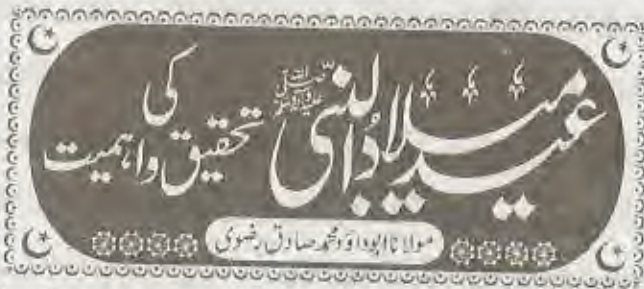 عید میلاد النبی صلی اللہ علیہ وسلم کی
تحقیق و اہمیت
مولانا ابوداؤد محمد صادق رضوی